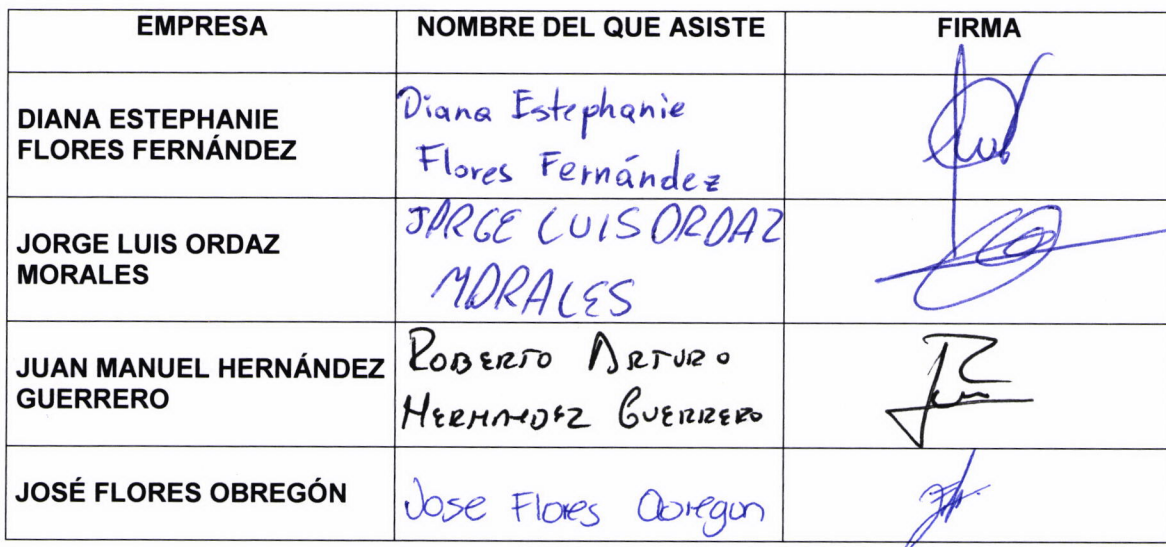 EMPRESA NOMBRE DEL QUE ASISTE FIRMA
DIANA ESTEPHANIE
FLORES FERNÁNDEZ
Diana Estephanie
Flores Fernández
JORGE LUIS ORDAZ
MORALES
JORGE LUIS ORDAZ
MORALES
JUAN MANUEL HERNÁNDEZ
GUERRERO
ROBERTO ARTURO
HERNANDEZ GUERRERO
JOSÉ FLORES OBREGÓN
Jose Flores Obregon